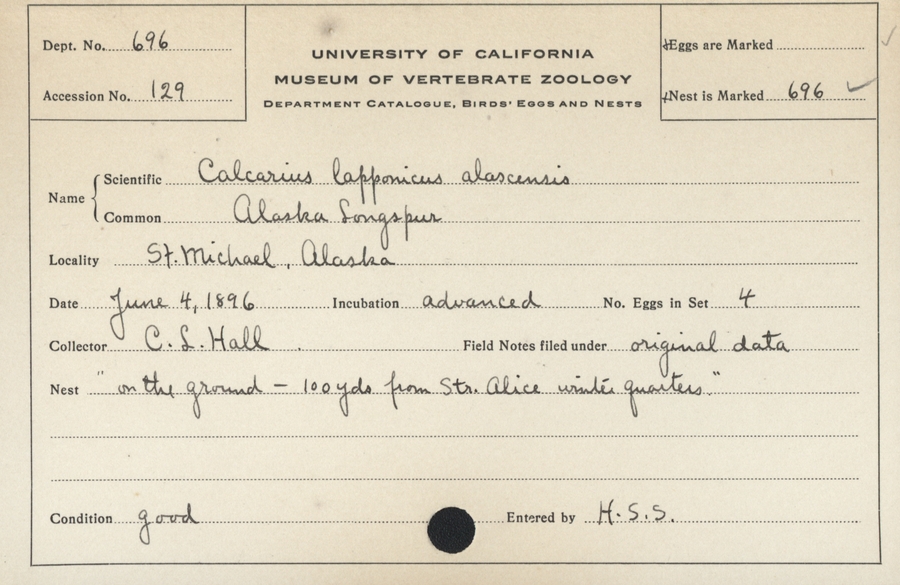 Dept. No. 696
Accession No. 129
UNIVERSITY OF CALIFORNIA
MUSEUM OF VERTEBRATE ZOOLOGY
DEPARTMENT CATALOGUE, BIRDS' EGGS AND NESTS
Eggs are Marked
Nest is Marked 696
Name
Scientific Calcarius lapponicus alascensis
Common Alaska Longspur
Locality St. Michael, Alaska
Date June 4, 1896 Incubation advanced No. Eggs in Set 4
Collector C. L. Hall Field Notes filed under original data
Nest "on the ground – 100 yds from Str. Alice winter quarters."
Condition good Entered by H.S.S.